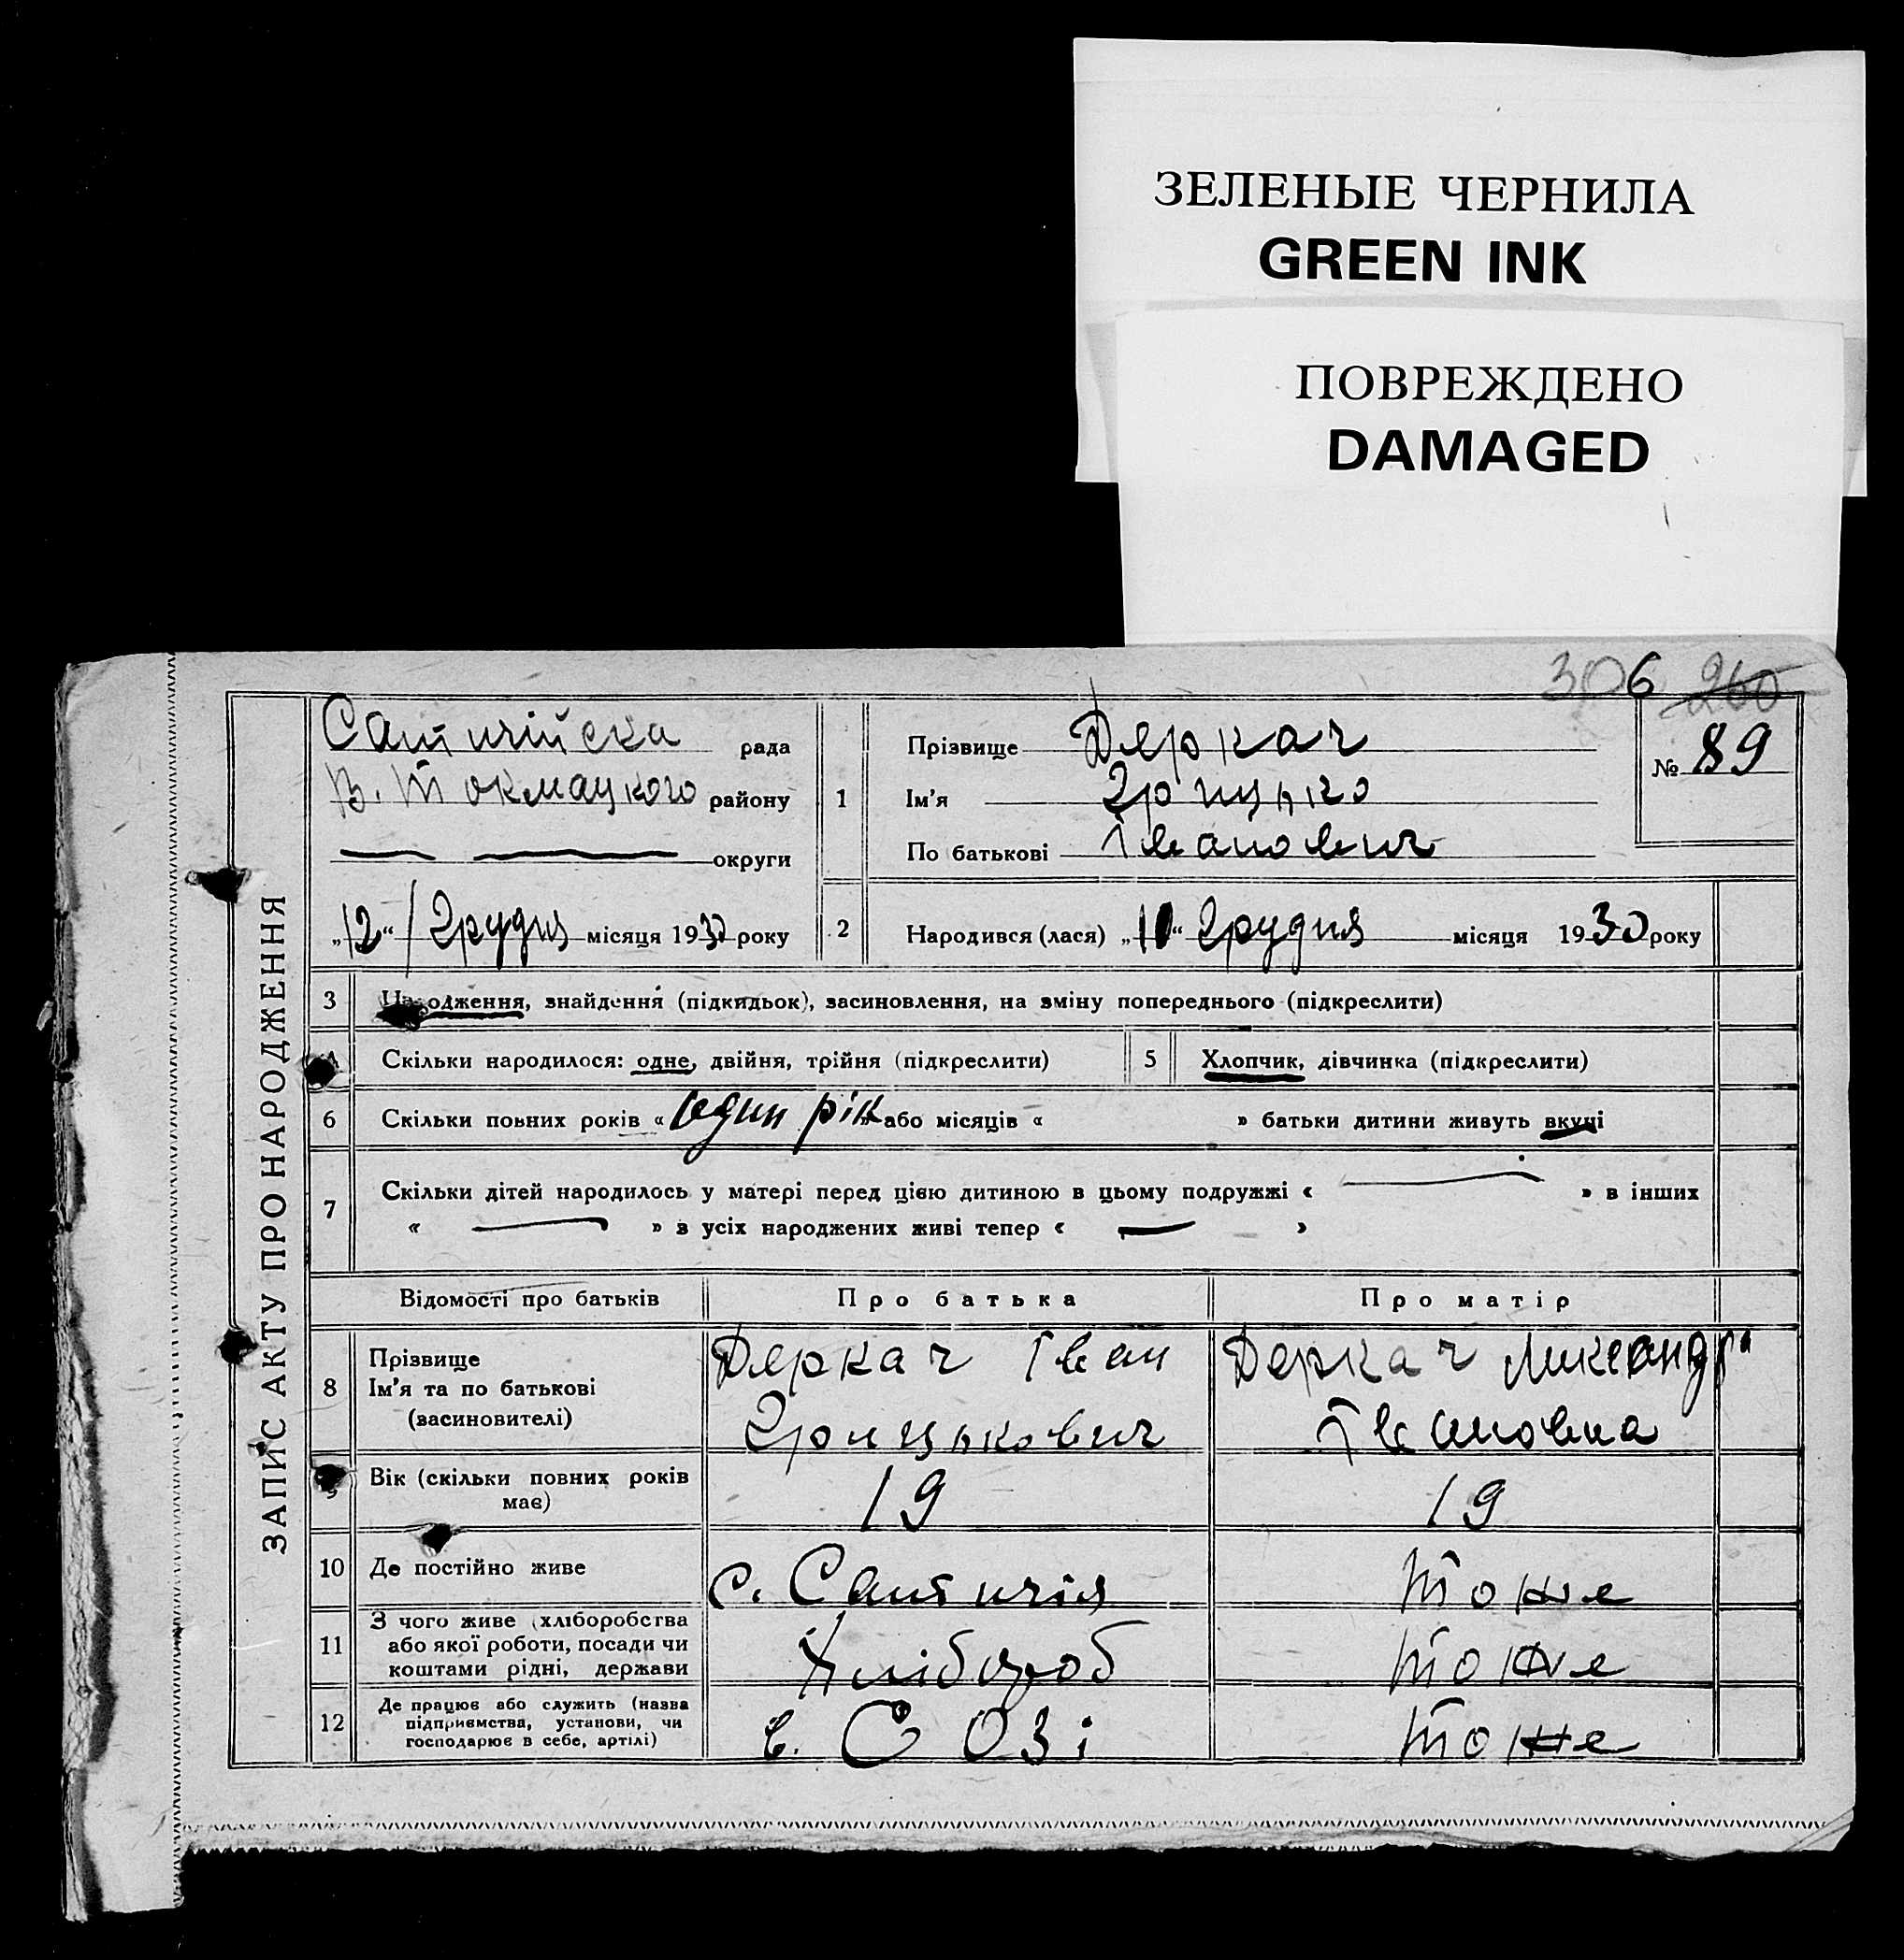 ЗЕЛЕНЫЕ ЧЕРНИЛА
GREEN INK
ПОВРЕЖДЕНО
DAMAGED
306 260
ЗАПИС АКТУ ПРО НАРОДЖЕННЯ
рада
В. Токмацкого району
округи
„12“ Грудня місяця 1930 року
1
Прізвище Деркач
Ім'я Грицько
По батькові Іванович
№ 89
2 Народився (лася) „11“ Грудня місяця 1930 року
3 Народження, знайдення (підкидьок), засиновлення, на зміну попереднього (підкреслити)
4 Скільки народилося: одне, двійня, трійня (підкреслити) 5 Хлопчик, дівчинка (підкреслити)
6 Скільки повних років « один рік або місяців « » батьки дитини живуть вкупі
7 Скільки дітей народилось у матері перед цією дитиною в цьому подружжі « — » в інших
« — » з усіх народжених живі тепер « — »
Відомості про батьків Про батька Про матір
8 Прізвище Ім'я та по батькові (засиновителі) Деркач Іван Деркач
Грицькович Івановна
9 Вік (скільки повних років має) 19 19
10 Де постійно живе с. тоже
11 З чого живе (хліборобства або якої роботи, посади чи коштами рідні, держави Хлібороб тоже
12 Де працює або служить (назва підприємства, установи, чи господарює в себе, артілі) в. СОЗі тоже